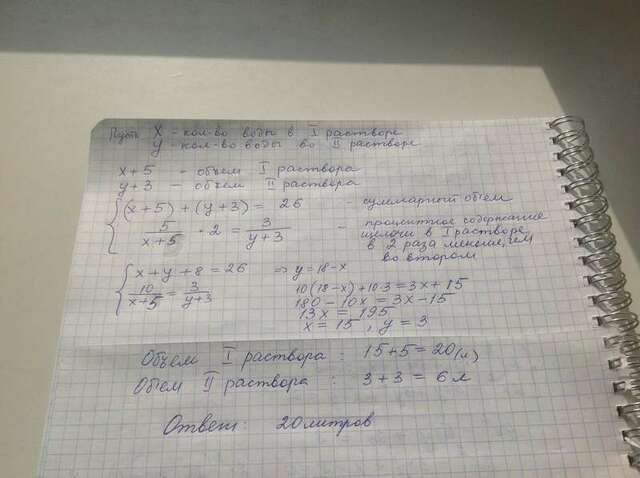 Пусть X - кол-во воды в I растворе
y - кол-во воды во II растворе
x+5 - объём I раствора
y+3 - объем II раствора
(x+5) + (y+3) = 26 - суммарный объём
5/(x+5) · 2 = 3/(y+3) - процентное содержание щелочи в I растворе в 2 раза меньше, чем во втором
x+y+8=26 => y=18-x
10/(x+5) = 3/(y+3) 10(18-x)+10·3=3x+15
180-10x=3x-15
13x = 195
x = 15, y = 3
Объем I раствора : 15+5=20(л)
Объем II раствора : 3+3 = 6л
Ответ: 20литров